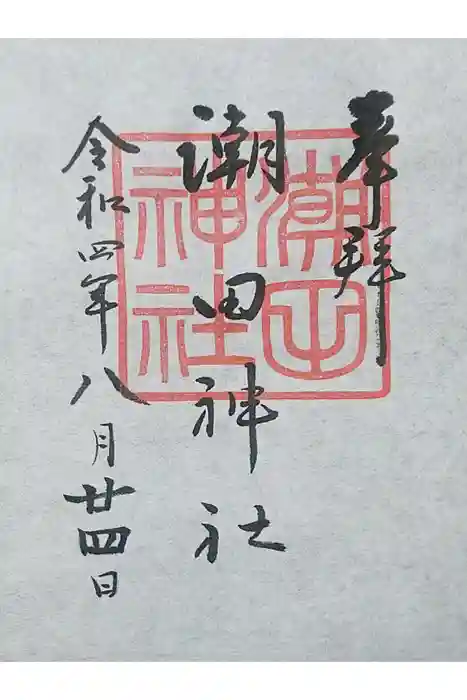 奉拝
潮田神社
令和四年八月廿四日
潮田
神社